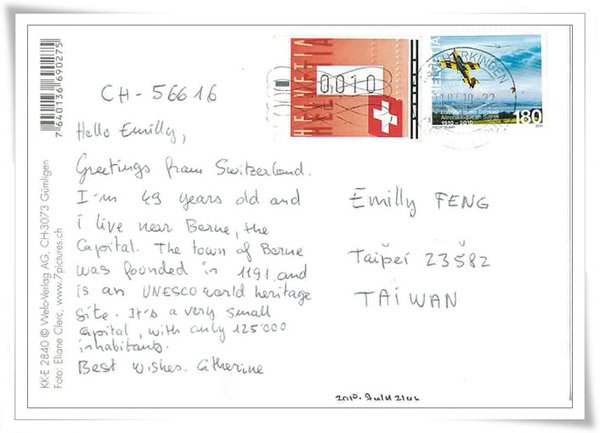 CH-56616
Hello Emilly,
Greetings from Switzerland.
I'm 49 years old and
i live near Berne, the
Capital. The town of Berne
was founded in 1191 and
is an UNESCO world heritage
site. It's a very small
Capital, with only 125'000
inhabitants.
Best wishes. Catherine
Emilly FENG
Taipei 23582
TAIWAN
HELVETIA
0,010
HELVETIA
HELVETIA
180
1910-2010
7640136690275
KK-E 2840 © Weto-Verlag AG, CH-3073 Gümligen
Foto: Eliane Clerc, www.7pictures.ch